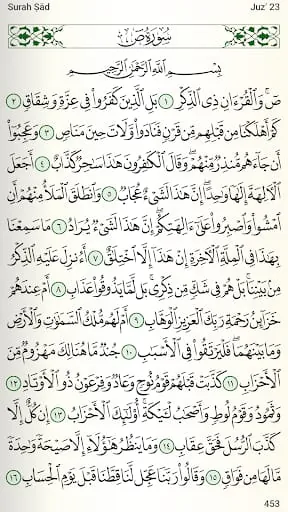 Surah Ṣād
Juz' 23
سُورَةُ صٓ
بِسْمِ ٱللَّهِ ٱلرَّحْمَٰنِ ٱلرَّحِيمِ
صٓ ۚ وَٱلْقُرْءَانِ ذِى ٱلذِّكْرِ ١ بَلِ ٱلَّذِينَ كَفَرُوا۟ فِى عِزَّةٍ وَشِقَاقٍ ٢
كَمْ أَهْلَكْنَا مِن قَبْلِهِم مِّن قَرْنٍ فَنَادَوا۟ وَّلَاتَ حِينَ مَنَاصٍ ٣ وَعَجِبُوٓا۟
أَن جَآءَهُم مُّنذِرٌ مِّنْهُمْ ۖ وَقَالَ ٱلْكَٰفِرُونَ هَٰذَا سَٰحِرٌ كَذَّابٌ ٤ أَجَعَلَ
ٱلْءَالِهَةَ إِلَٰهًا وَٰحِدًا ۖ إِنَّ هَٰذَا لَشَىْءٌ عُجَابٌ ٥ وَٱنطَلَقَ ٱلْمَلَأُ مِنْهُمْ أَنِ
ٱمْشُوا۟ وَٱصْبِرُوا۟ عَلَىٰٓ ءَالِهَتِكُمْ ۖ إِنَّ هَٰذَا لَشَىْءٌ يُرَادُ ٦ مَا سَمِعْنَا
بِهَٰذَا فِى ٱلْمِلَّةِ ٱلْءَاخِرَةِ إِنْ هَٰذَآ إِلَّا ٱخْتِلَٰقٌ ٧ أَءُنزِلَ عَلَيْهِ ٱلذِّكْرُ
مِنۢ بَيْنِنَا ۚ بَلْ هُمْ فِى شَكٍّ مِّن ذِكْرِى ۖ بَل لَّمَّا يَذُوقُوا۟ عَذَابِ ٨ أَمْ عِندَهُمْ
خَزَآئِنُ رَحْمَةِ رَبِّكَ ٱلْعَزِيزِ ٱلْوَهَّابِ ٩ أَمْ لَهُم مُّلْكُ ٱلسَّمَٰوَٰتِ وَٱلْأَرْضِ
وَمَا بَيْنَهُمَا ۖ فَلْيَرْتَقُوا۟ فِى ٱلْأَسْبَٰبِ ١٠ جُندٌ مَّا هُنَالِكَ مَهْزُومٌ مِّنَ
ٱلْأَحْزَابِ ١١ كَذَّبَتْ قَبْلَهُمْ قَوْمُ نُوحٍ وَعَادٌ وَفِرْعَوْنُ ذُو ٱلْأَوْتَادِ ١٢
وَثَمُودُ وَقَوْمُ لُوطٍ وَأَصْحَٰبُ لْـَٔيْكَةِ ۚ أُو۟لَٰٓئِكَ ٱلْأَحْزَابُ ١٣ إِن كُلٌّ إِلَّا
كَذَّبَ ٱلرُّسُلَ فَحَقَّ عِقَابِ ١٤ وَمَا يَنظُرُ هَٰٓؤُلَآءِ إِلَّا صَيْحَةً وَٰحِدَةً
مَّا لَهَا مِن فَوَاقٍ ١٥ وَقَالُوا۟ رَبَّنَا عَجِّل لَّنَا قِطَّنَا قَبْلَ يَوْمِ ٱلْحِسَابِ ١٦
453